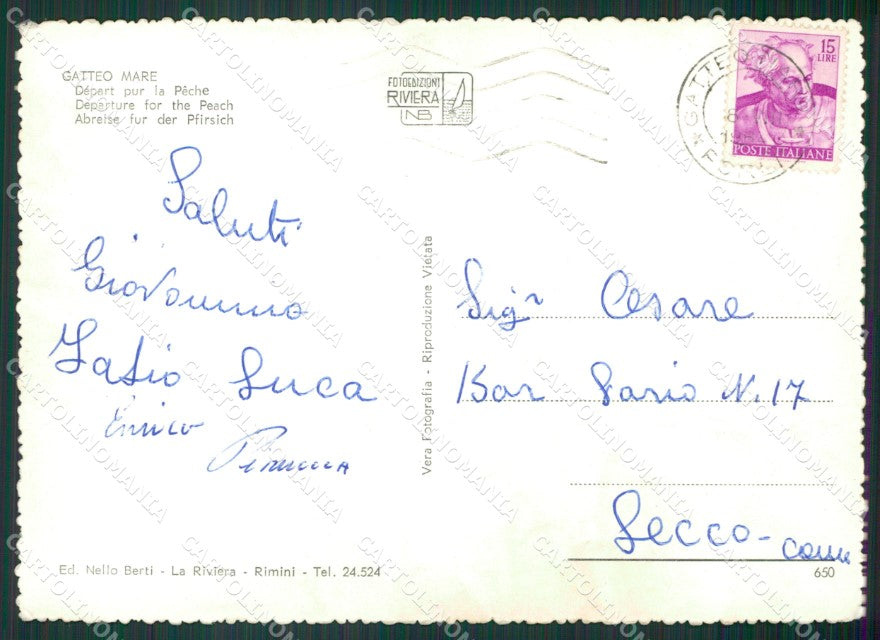 GATTEO MARE
Départ pur la Pêche
Departure for the Peach
Abreise fur der Pfirsich
FOTOEDIZIONI
RIVIERA
NB
GATTEO
15
LIRE
POSTE ITALIANE
Saluti
Giovannino
Luca
Enrico
Vera Fotografia - Riproduzione Vietata
Sigr Cesare
Bar Lario N. 17
Lecco - Como
Ed. Nello Berti - La Riviera - Rimini - Tel. 24.524
650
CARTOLINOMANIA